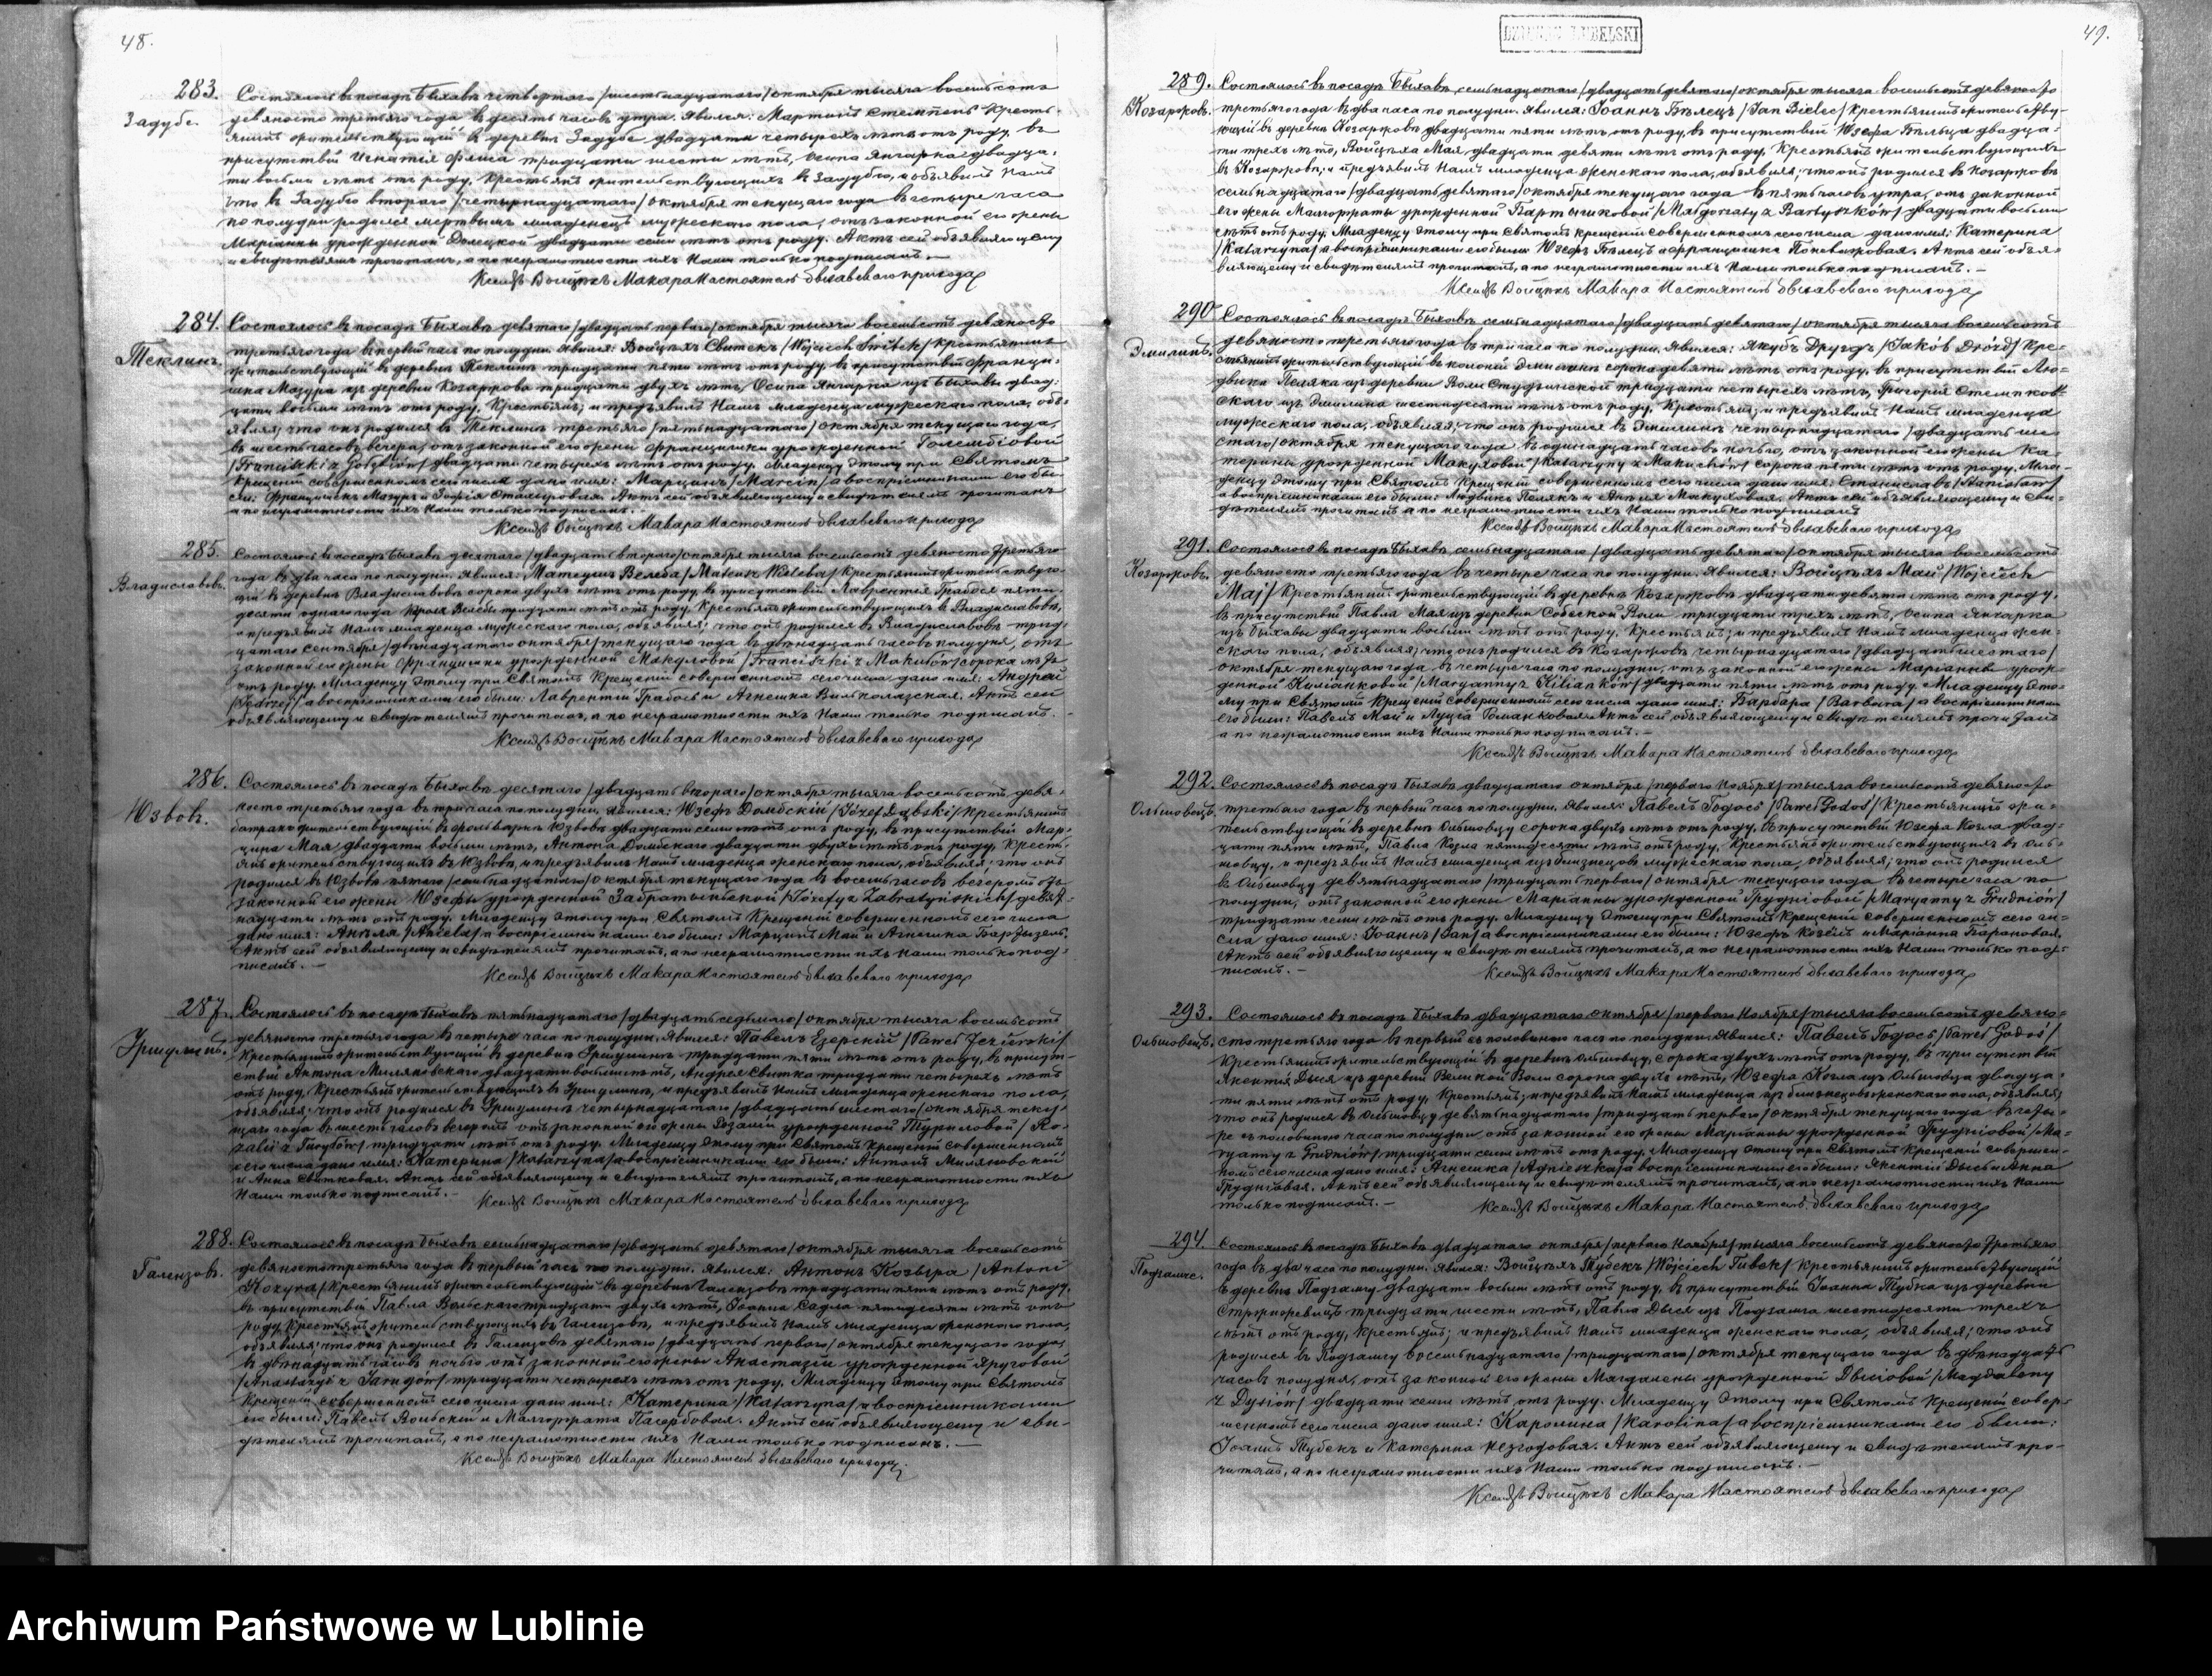 48.
283.
Задубе.
Состоялось въ посадѣ Быхавѣ четвертаго /шестнадцатаго/ октября тысяча восемьсотъ
девяносто третьяго года въ десять часовъ утра. Явился: Мартинъ Стемпень кресть-
янинъ жительствующій въ деревнѣ Задубе двадцати четырехъ лѣтъ отъ роду, въ
присутствіи Игнатія тридцати шести лѣтъ, Осипа Янгарка двадца-
ти восьми лѣтъ отъ роду, крестьянъ жительствующихъ въ Задубю, и объявилъ Намъ
что въ Задубю втораго /четырнадцатаго/ октября текущаго года въ четыре часа
по полудни родился мертвымъ младенецъ мужескаго пола, отъ законной его жены
Маріанны урожденной двадцати семи лѣтъ отъ роду. Актъ сей объявляющему
и свидѣтелямъ прочитанъ, а по неграмотности ихъ Нами только подписанъ.
Ксендзъ Войцѣхъ Макара Настоятель быхавскаго прихода
284.
Теклинъ.
Состоялось въ посадѣ Быхавѣ девятаго /двадцать перваго/ октября тысяча восемьсотъ девяносто
третьяго года въ первый часъ по полудни. Явился: Войцѣхъ Свитекъ /Wojciech Świtek/ крестьянинъ
жительствующій въ деревнѣ Теклинъ тридцати пяти лѣтъ отъ роду, въ присутствіи Франци-
шка Мазура изъ деревни Козаржова тридцати двухъ лѣтъ, Осипа Янгарка изъ Быхавы двад-
цати восьми лѣтъ отъ роду, крестьянъ; и предъявилъ Намъ младенца мужескаго пола, объ-
являя; что онъ родился въ Теклинѣ третьяго /пятнадцатаго/ октября текущаго года,
въ шесть часовъ вечера, отъ законной его жены Францишки урожденной Голембіовой
/Franciszki z Gołębiów/ двадцати четырехъ лѣтъ отъ роду. Младенцу этому при Святомъ
Крещеніи совершенномъ сего числа дано имя: Марцинъ /Marcin/ а воспріемниками его бы-
ли: Францишекъ Мазуръ и Зофія. Актъ сей объявляющему и свидѣтелямъ прочитанъ
а по неграмотности ихъ Нами только подписанъ.
Ксендзъ Войцѣхъ Макара Настоятель быхавскаго прихода
285.
Владиславовъ.
Состоялось въ посадѣ Быхавѣ десятаго /двадцать втораго/ октября тысяча восемьсотъ девяносто третьяго
года въ два часа по полудни. Явился: Матеушъ Велеба /Mateusz Wieleba/ крестьянинъ жительствую-
щій въ деревнѣ Владиславовъ сорока двухъ лѣтъ отъ роду, въ присутствіи Лаврентія Грабося пяти-
десяти одного года, Велебы тридцати лѣтъ отъ роду, крестьянъ жительствующихъ въ Владиславовѣ,
и предъявилъ Намъ младенца мужескаго пола, объявляя; что онъ родился въ Владиславовѣ трид-
цатаго сентября /двѣнадцатаго октября/ текущаго года въ двѣнадцать часовъ полудня, отъ
законной его жены Францишки урожденной Макуловой /Franciszki z Makułów/ сорока лѣтъ
отъ роду. Младенцу этому при Святомъ Крещеніи совершенномъ сего числа дано имя: Андрей
/Jędrzej/ а воспріемниками его были: Лаврентій Грабось и Агнешка. Актъ сей
объявляющему и свидѣтелямъ прочитанъ, а по неграмотности ихъ Нами только подписанъ.
Ксендзъ Войцѣхъ Макара Настоятель быхавскаго прихода
286.
Юзвовъ.
Состоялось въ посадѣ Быхавѣ десятаго /двадцать втораго/ октября тысяча восемьсотъ девя-
носто третьяго года въ три часа по полудни. Явился: Юзефъ Домбскій /Józef Dąbski/ крестьянинъ
батракъ жительствующій въ фольваркѣ Юзвовъ двадцати семи лѣтъ отъ роду, въ присутствіи Мар-
цина Мая двадцати восьми лѣтъ, Антона Домбскаго двадцати двухъ лѣтъ отъ роду, кресть-
янъ жительствующихъ въ Юзвовѣ, и предъявилъ Намъ младенца женскаго пола, объявляя; что онъ
родился въ Юзвовѣ пятаго /семнадцатаго/ октября текущаго года въ восемь часовъ вечеромъ отъ
законной его жены Юзефы урожденной Забратыньской /Józefy z Zabratyńskich/ девят-
надцати лѣтъ отъ роду. Младенцу этому при Святомъ Крещеніи совершенномъ сего числа
дано имя: Анѣля /Aniela/ а воспріемниками его были: Марцинъ Май и Агнешка.
Актъ сей объявляющему и свидѣтелямъ прочитанъ, а по неграмотности ихъ Нами только под-
писанъ. —
Ксендзъ Войцѣхъ Макара Настоятель быхавскаго прихода
287.
Гришлинъ.
Состоялось въ посадѣ Быхавѣ пятнадцатаго /двадцать седьмаго/ октября тысяча восемьсотъ
девяносто третьяго года въ четыре часа по полудни. Явился: Павелъ Езерскій /Paweł Jezierski/
крестьянинъ жительствующій въ деревнѣ тридцати пяти лѣтъ отъ роду, въ присут-
ствіи Антона Миляновскаго двадцати восьми лѣтъ, Андрея Свитка тридцати четырехъ лѣтъ
отъ роду, крестьянъ жительствующихъ въ, и предъявилъ Намъ младенца женскаго пола,
объявляя; что онъ родился въ четырнадцатаго /двадцать шестаго/ октября теку-
щаго года въ шесть часовъ вечеромъ отъ законной его жены Розаліи урожденной /Ro-
zalii z/ тридцати лѣтъ отъ роду. Младенцу этому при Святомъ Крещеніи совершенномъ
сего числа дано имя: Катерина /Katarzyna/ а воспріемниками его были: Антонъ Миляновскій
и Анна Свиткова. Актъ сей объявляющему и свидѣтелямъ прочитанъ, а по неграмотности ихъ
Нами только подписанъ. —
Ксендзъ Войцѣхъ Макара Настоятель быхавскаго прихода
288.
Галензовъ.
Состоялось въ посадѣ Быхавѣ семнадцатаго /двадцать девятаго/ октября тысяча восемьсотъ
девяносто третьяго года въ первый часъ по полудни. Явился: Антонъ Козыра /Antoni
Kozyra/ крестьянинъ жительствующій въ деревнѣ Галензовъ тридцати пяти лѣтъ отъ роду,
въ присутствіи Павла Вольскаго тридцати двухъ лѣтъ, Іоанна Садла пятидесяти лѣтъ отъ
роду, крестьянъ жительствующихъ въ Галензовѣ, и предъявилъ Намъ младенца женскаго пола,
объявляя; что онъ родился въ Галензовѣ девятаго /двадцать перваго/ октября текущаго года,
въ двѣнадцать часовъ ночью отъ законной его жены Анастазіи урожденной
/Anastazyi z/ тридцати четырехъ лѣтъ отъ роду. Младенцу этому при Святомъ
Крещеніи совершенномъ сего числа дано имя: Катерина /Katarzyna/ а воспріемниками
его были: Павелъ и Малгоржата. Актъ сей объявляющему и сви-
дѣтелямъ прочитанъ, а по неграмотности ихъ Нами только подписанъ. —
Ксендзъ Войцѣхъ Макара Настоятель быхавскаго прихода
49.
289.
Козаржовъ.
Состоялось въ посадѣ Быхавѣ семнадцатаго /двадцать девятаго/ октября тысяча восемьсотъ девяносто
третьяго года въ два часа по полудни. Явился: Іоаннъ Бѣлецъ /Jan Bielec/ крестьянинъ жительству-
ющій въ деревнѣ Козаржовѣ двадцати пяти лѣтъ отъ роду, въ присутствіи Юзефа Бѣльца двадца-
ти трехъ лѣтъ, Войцѣха Мая двадцати девяти лѣтъ отъ роду, крестьянъ жительствующихъ
въ Козаржовѣ; и предъявилъ Намъ младенца женскаго пола, объявляя; что онъ родился въ Козаржовѣ
семнадцатаго /двадцать девятаго/ октября текущаго года въ пять часовъ утра, отъ законной
его жены Малгоржаты урожденной Бартошковой /Małgorzaty z Bartoszków/ двадцати восьми
лѣтъ отъ роду. Младенцу этому при Святомъ Крещеніи совершенномъ сего числа дано имя: Катерина
/Katarzyna/ а воспріемниками его были: Юзефъ Бѣлецъ и Францишка. Актъ сей объя-
вляющему и свидѣтелямъ прочитанъ, а по неграмотности ихъ Нами только подписанъ. —
Ксендзъ Войцѣхъ Макара Настоятель быхавскаго прихода
290
Эмилинъ.
Состоялось въ посадѣ Быхавѣ семнадцатаго /двадцать девятаго/ октября тысяча восемьсотъ
девяносто третьяго года въ три часа по полудни. Явился: Якубъ Друздъ /Jakób Drózd/ кре-
стьянинъ жительствующій въ колоніи Эмилинъ сорока девяти лѣтъ отъ роду, въ присутствіи Лю-
двика Пеляка изъ деревни Воли Студзянской тридцати четырехъ лѣтъ, Григорія Стемпков-
скаго изъ Эмилина шестидесяти лѣтъ отъ роду, крестьянъ; и предъявилъ Намъ младенца
мужескаго пола, объявляя; что онъ родился въ Эмилинѣ четырнадцатаго /двадцать ше-
стаго/ октября текущаго года въ одинадцать часовъ ночью, отъ законной его жены Ка-
терины урожденной Макуховой /Katarzyny z Makuchów/ сорока пяти лѣтъ отъ роду. Мла-
денцу этому при Святомъ Крещеніи совершенномъ сего числа дано имя: Станиславъ /Stanisław/
а воспріемниками его были: Людвикъ Пелякъ и Анѣля Макухова. Актъ сей объявляющему и сви-
дѣтелямъ прочитанъ а по неграмотности ихъ Нами только подписанъ
Ксендзъ Войцѣхъ Макара Настоятель быхавскаго прихода
291.
Козаржовъ.
Состоялось въ посадѣ Быхавѣ семнадцатаго /двадцать девятаго/ октября тысяча восемьсотъ
девяносто третьяго года въ четыре часа по полудни. Явился: Войцѣхъ Май /Wojciech
Maj/ крестьянинъ жительствующій въ деревнѣ Козаржовъ двадцати девяти лѣтъ отъ роду,
въ присутствіи Павла Мая изъ деревни Собеской Воли тридцати трехъ лѣтъ, Осипа Янгарка
изъ Быхавы двадцати восьми лѣтъ отъ роду, крестьянъ; и предъявилъ Намъ младенца жен-
скаго пола, объявляя; что онъ родился въ Козаржовѣ четырнадцатаго /двадцать шестаго/
октября текущаго года, въ четыре часа по полудни, отъ законной его жены Маріанны урож-
денной Киліанковой /Maryanny z Kilianków/ двадцати пяти лѣтъ отъ роду. Младенцу это-
му при Святомъ Крещеніи совершенномъ сего числа дано имя: Барбара /Barbara/ а воспріемниками
его были: Павелъ Май и Луція Романкова. Актъ сей объявляющему и свидѣтелямъ прочитанъ
а по неграмотности ихъ Нами только подписанъ. —
Ксендзъ Войцѣхъ Макара Настоятель быхавскаго прихода
292.
Ольшовецъ.
Состоялось въ посадѣ Быхавѣ двадцатаго октября /перваго Ноября/ тысяча восемьсотъ девяносто
третьяго года въ первый часъ по полудни. Явился: Павелъ Годось /Paweł Godoś/ крестьянинъ жи-
тельствующій въ деревнѣ Ольшовцу сорока двухъ лѣтъ отъ роду, въ присутствіи Юзефа Козла двад-
цати пяти лѣтъ, Павла Козла пятидесяти лѣтъ отъ роду, крестьянъ жительствующихъ въ Оль-
шовцу, и предъявилъ Намъ младенца изъ близнецовъ мужескаго пола, объявляя; что онъ родился
въ Ольшовцу девятнадцатаго /тридцать перваго/ октября текущаго года въ четыре часа по
полудни, отъ законной его жены Маріанны урожденной Грудніовой /Maryanny z Grudniów/
тридцати семи лѣтъ отъ роду. Младенцу этому при Святомъ Крещеніи совершенномъ сего чи-
сла дано имя: Іоаннъ /Jan/ а воспріемниками его были: Юзефъ Козелъ и Маріанна Баранова.
Актъ сей объявляющему и свидѣтелямъ прочитанъ, а по неграмотности ихъ Нами только под-
писанъ. —
Ксендзъ Войцѣхъ Макара Настоятель быхавскаго прихода
293.
Ольшовецъ.
Состоялось въ посадѣ Быхавѣ двадцатаго октября /перваго Ноября/ тысяча восемьсотъ девяно-
сто третьяго года въ первый съ половиною часъ по полудни. Явился: Павелъ Годось /Paweł Godoś/
крестьянинъ жительствующій въ деревнѣ Ольшовцу, сорока двухъ лѣтъ отъ роду, въ присутствіи
Якентія Дыся изъ деревни Великой Воли сорока двухъ лѣтъ, Юзефа Козла изъ Ольшовца двадца-
ти пяти лѣтъ отъ роду, крестьянъ; и предъявилъ Намъ младенца изъ близнецовъ женскаго пола, объявляя;
что онъ родился въ Ольшовцу девятнадцатаго /тридцать перваго/ октября текущаго года въ четы-
ре съ половиною часа по полудни, отъ законной его жены Маріанны урожденной Грудніовой /Ma-
ryanny z Grudniów/ тридцати семи лѣтъ отъ роду. Младенцу этому при Святомъ Крещеніи совершен-
номъ сего числа дано имя: Агнешка /Agnieszka/ а воспріемниками его были: Якентій Дысь и Анна
Грудніова. Актъ сей объявляющему и свидѣтелямъ прочитанъ, а по неграмотности ихъ Нами
только подписанъ. —
Ксендзъ Войцѣхъ Макара Настоятель быхавскаго прихода
294.
Подзамче.
Состоялось въ посадѣ Быхавѣ двадцатаго октября /перваго Ноября/ тысяча восемьсотъ девяносто третьяго
года въ два часа по полудни. Явился: Войцѣхъ Тубекъ /Wojciech Tubek/ крестьянинъ жительствующій
въ деревнѣ Подзамчу двадцати восьми лѣтъ отъ роду, въ присутствіи Іоанна Тубка изъ деревни
тридцати шести лѣтъ, Павла Дыся изъ Подзамча шестидесяти трехъ
лѣтъ отъ роду, крестьянъ; и предъявилъ Намъ младенца женскаго пола, объявляя; что онъ
родился въ Подзамчу восемнадцатаго /тридцатаго/ октября текущаго года въ двѣнадцать
часовъ полудня, отъ законной его жены Магдалены урожденной Дысіовой /Magdaleny
z Dysiów/ двадцати семи лѣтъ отъ роду. Младенцу этому при Святомъ Крещеніи совер-
шенномъ сего числа дано имя: Каролина /Karolina/ а воспріемниками его были:
Іоаннъ Тубекъ и Катерина Незгодовая. Актъ сей объявляющему и свидѣтелямъ про-
читанъ, а по неграмотности ихъ Нами только подписанъ. —
Ксендзъ Войцѣхъ Макара Настоятель быхавскаго прихода
Archiwum Państwowe w Lublinie